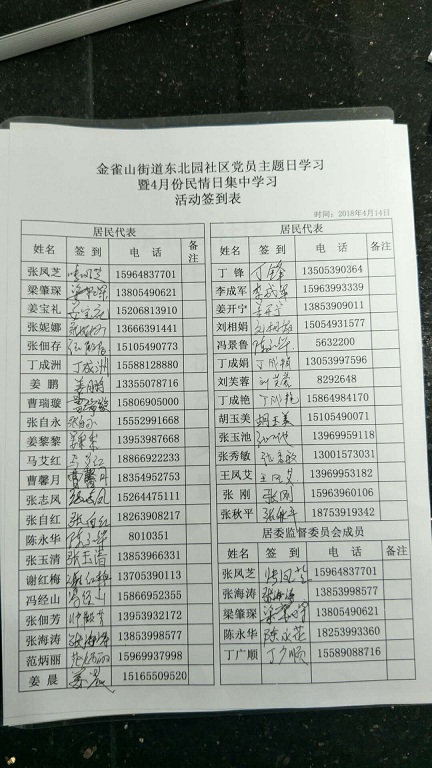 金雀山街道东北园社区党员主题日学习
暨4月份民情日集中学习
活动签到表
时间：2018年4月14日
居民代表
姓名 签 到 电 话 备注
张凤芝 张凤芝 15964837701
梁肇琛 梁肇琛 13805490621
姜宝礼 姜宝礼 15206813910
张妮娜 13666391441
张佃存 15105490773
丁成洲 丁成洲 15588128880
姜 鹏 姜鹏 13355078716
曹瑞璇 曹瑞璇 15806905000
张自永 张自永 15552991668
姜黎黎 13953987668
马艾红 马艾红 18866922233
曹馨月 曹馨月 18354952753
张志凤 张志凤 15264475111
张自红 张自红 18263908217
陈永华 8010351
张玉清 张玉清 13853966331
谢红梅 谢红梅 13705390113
冯经山 冯经山 15866952355
张佃芳 13953932172
张海涛 张海涛 13853998577
范炳丽 范炳丽 15969937998
姜 晨 姜晨 15165509520
居民代表
姓名 签 到 电 话 备注
丁 锋 丁锋 13505390364
李成军 李成军 15963993339
姜开宁 姜开宁 13853909011
刘相娟 刘相娟 15054931577
冯景鲁 5632200
丁成娟 丁成娟 13053997596
刘芙蓉 刘芙蓉 8292648
丁成艳 丁成艳 15864984170
胡玉美 胡玉美 15105490071
张玉池 13969959118
张秀敏 张秀敏 13001573031
王凤艾 王凤艾 13969953182
张 刚 张刚 15963960106
张秋平 张秋平 18753919342
居委监督委员会成员
姓名 签 到 电 话 备注
张凤芝 张凤芝 15964837701
张海涛 张海涛 13853998577
梁肇琛 梁肇琛 13805490621
陈永华 陈永花 18253993360
丁广顺 丁广顺 15589088716